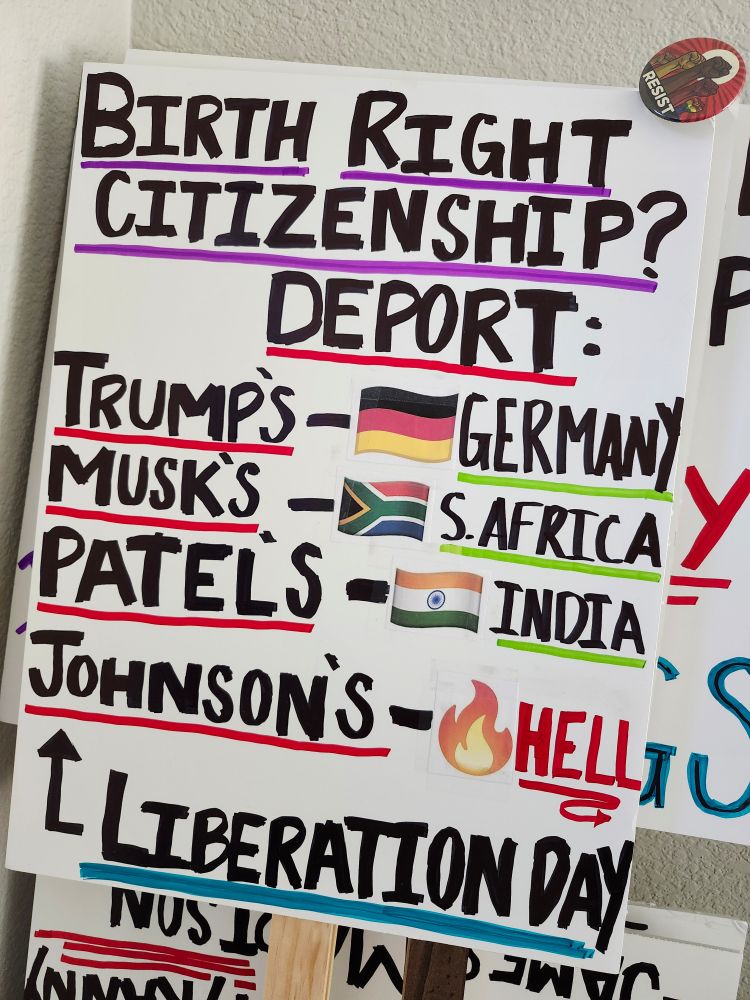 BIRTH RIGHT
CITIZENSHIP?
DEPORT:
TRUMP'S - GERMANY
MUSK'S - S. AFRICA
PATEL'S - INDIA
JOHNSON'S - HELL
LIBERATION DAY
RESIST